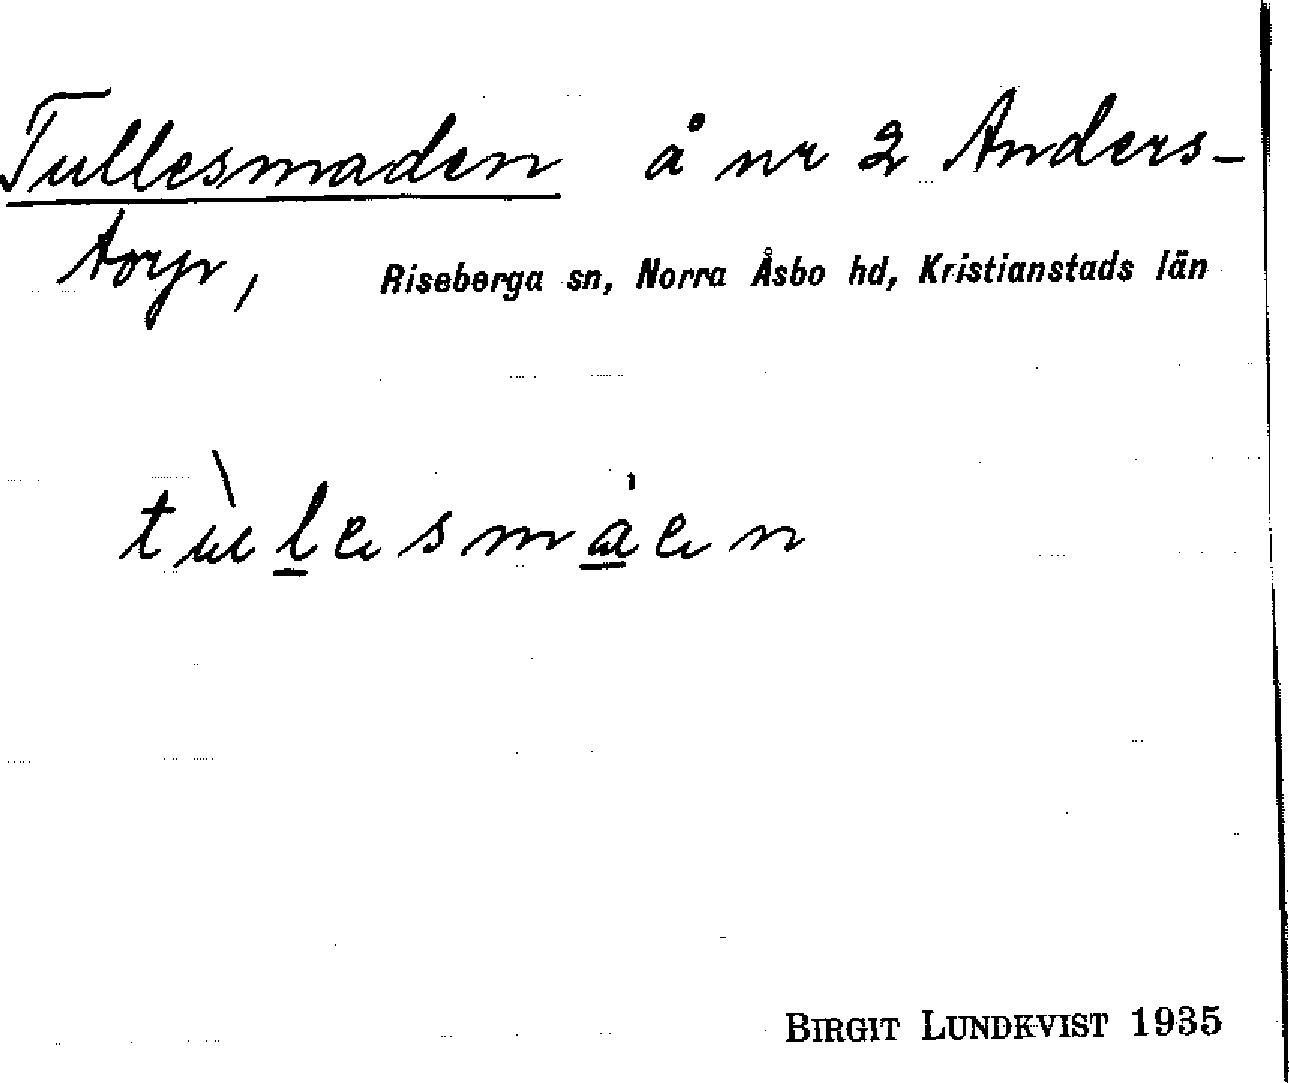 Tullesmaden å nr 2 Anders-
torp, Riseberga sn, Norra Åsbo hd, Kristianstads län
tùlesmáen
BIRGIT LUNDKVIST 1935